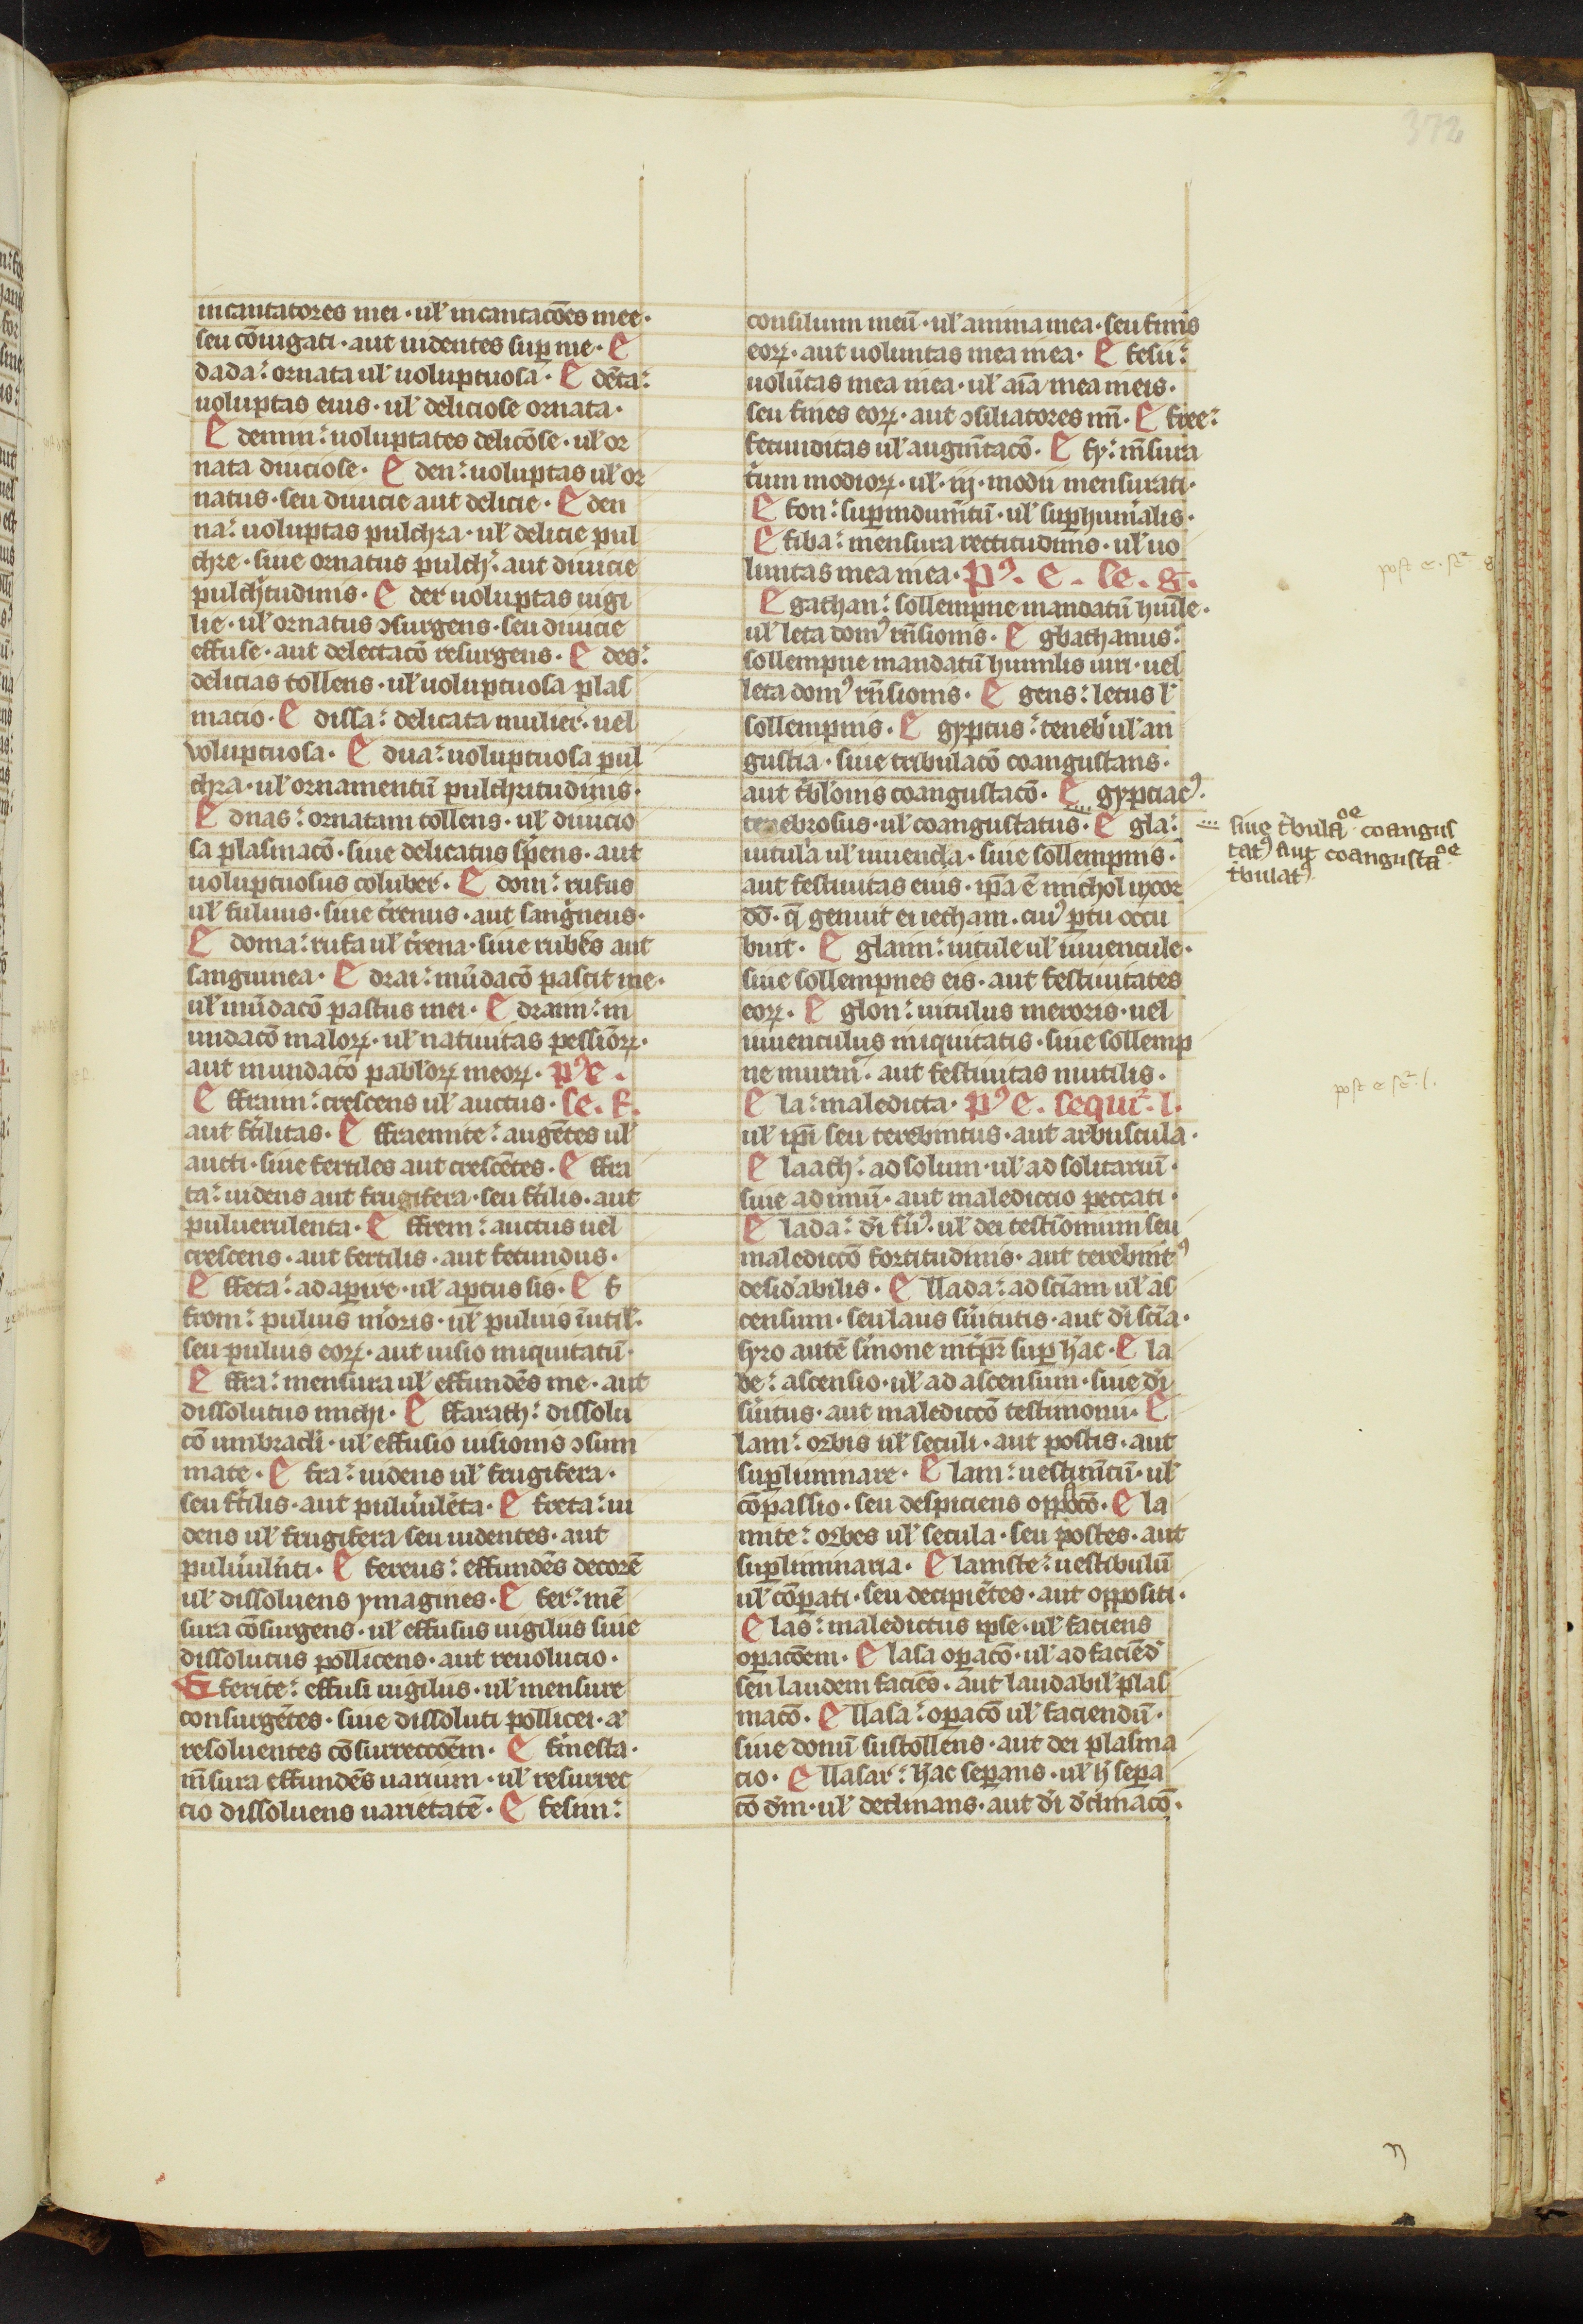 372
incantatores mei · ul̉ incantacōes mee ·
seu cōiugati · aut uidentes sup̄ me · E
dada: ornata ul̉ uoluptuosa · E dēta:
uoluptas eius · ul̉ deliciose ornata ·
E demim: uoluptates delicōse · ul̉ or
nata diuiciose · E den: uoluptas ul̉ or
natus · seu diuicie aut delicie · E den
na: uoluptas pulchra · ul̉ delicie pul
chre · siue ornatus pulch̉ · aut diuicie
pulch̉tudinis · E der uoluptas uigi
lie · ul̉ ornatus ↄsurgens · seu diuicie
effuse · aut delectacō resurgens · E des:
delicias tollens · ul̉ uoluptuosa plas
macio · E dissa: delicata mulier · uel
voluptuosa · E dua: uoluptuosa pul
chra · ul̉ ornamentū pulchritudinis ·
E dnas: ornatam tollens · ul̉ diuicio
sa plasmacō · siue delicatus s̉pens · aut
uoluptuosus coluber · E dom: rufus
ul̉ fuluus · siue t̉renus · aut sang̉neus ·
E doma: rufa ul̉ t̉rena · siue rubēs aut
sanguinea · E drai: mūdacō pascit me ·
ul̉ mūdacō pastus mei · E draim: in
undacō maloꝝ · ul̉ natiuitas pessīoꝝ ·
aut inundacō pabl̉oꝝ meoꝝ · pꝰ e ·
E ffraim: crescens ul̉ auctus · se · f ·
aut f̉tilitas · E ffraemite: augētes ul̉
aucti · siue fertiles aut crescētes · E ffra
ta: uidens aut frugifera · seu f̉tilis · aut
puluerulenta · E ffrem: auctus uel
crescens · aut fertilis · aut fecundus ·
E ffeta: adaꝑire · ul̉ aꝑtus sis · E f
from: puluis m̉oris · ul̉ puluis īutil̉ ·
seu puluis eoꝝ · aut uisio iniquitatū ·
E ffra: mensura ul̉ effundēs me · aut
dissolutus michi · E ffarath: dissolu
cō umbraculi · ul̉ effusio uisionis ↄsum
mate · E fra: uidens ul̉ frugifera ·
seu f̉tilis · aut puluul̉ēta · E freta: ui
dens ul̉ frugifera seu uidentes · aut
puluul̉nti · E fereus: effundēs decorē
ul̉ dissoluens ymagines · E fer: mē
sura cōsurgens · ul̉ effusus uigilus siue
dissolutus pollicens · aut reuolucio ·
E ferite: effusi uigilus · ul̉ mensure
consurgētes · siue dissoluti pollicei · a̅
resoluentes cōsurreccōem · E f̉mesta ·
m̄sura effundēs uarium · ul̉ resurrec
cio dissoluens uarietatē · E fesim:
consilium meū · ul̉ anima mea · seu finis
eoꝝ · aut uoluntas mea mea · E fesu:
uolūtas mea mea · ul̉ aīa mea meis ·
seu fines eoꝝ · aut ↄsiliatores mī · E free:
fecunditas ul̉ augm̄tacō · E fy: m̄sura
t̉um modioꝝ · ul̉ · iij · modii mensurati ·
E fon: suꝑindum̄tū · ul̉ suꝑhum̉alis ·
E fiba: mensura rectitudinis · ul̉ uo
luntas mea mea · pꝰ · e · se · g ·
E gathan: sollempne mandatū humile ·
ul̉ leta domꝰ rn̄sionis · E gbathanus:
sollempne mandatū humilis uiri · uel
leta domꝰ rn̄sionis · E gens: letus l̉
sollempnis · E gyptus: teneb̉ ul̉ an
gustia · siue tribulacō coangustans ·
aut t̉bl̉onis coangustacō · E gyptiacꝰ ·
tenebrosus · ul̉ coangustatus · E gla:
uitula ul̉ iuuencła · siue sollempnis ·
aut festiuitas eius · ip̄a ē michol uxor
dd̄ · q̄ genuit ei iecham · cuiꝰ ꝑtu occu
buit · E glaim: uitule ul̉ iuuencule ·
siue sollempnes eis · aut festiuitates
eoꝝ · E glon: uitulus meroris · uel
iuuenculus iniquitatis · siue sollemp
ne murm̉ · aut festiuitas inutilis ·
E la: maledicta · pꝰ e · sequit̉ · l ·
ul̉ ip̄i seu terebintus · aut arbuscula ·
E laach: ad solum · ul̉ ad solitariū ·
siue ad imū · aut malediccio peccati ·
E lada: dī f̉uꝰ · ul̉ dei testīonium seu
malediccō fortitudinis · aut terebintꝰ
desid̉abilis · E llada: ad scīam ul̉ as
censum · seu laus s̉uitutis · aut dī scīa ·
syro autē s̉mone int̉p̄r suꝑ hac · E la
de: ascensio · ul̉ ad ascensum · siue dī
s̉uitus · aut malediccō testimonii · E
lam: orbis ul̉ seculi · aut postis · aut
suꝑliminare · E lam: uestim̄tū · ul̉
cōpassio · seu despiciens oppōcō · E la
mite: orbes ul̉ secula · seu postes · aut
suꝑliminaria · E lamste: uestibulū
ul̉ cōꝑati · seu decipiētes · aut oppositi ·
E las: maledictus ipse · ul̉ faciens
oꝑacōem · E lasa oꝑacō · ul̉ ad faciēd̉
seu laudem faciēs · aut laudabil̉ plas
macō · E llasa: oꝑacō ul̉ faciendū ·
siue donū sustollens · aut dei plasma
cio · E llasar: hac seꝑans · ul̉ h̉ seꝑa
cō dm̄ · ul̉ declinans · aut dī d̉clinacō ·
post e · seꝛ g
siue t̉bulaōe coangus
tatꝰ aut coangustaōe
t̉bulatꝰ
post e seꝛ l ·